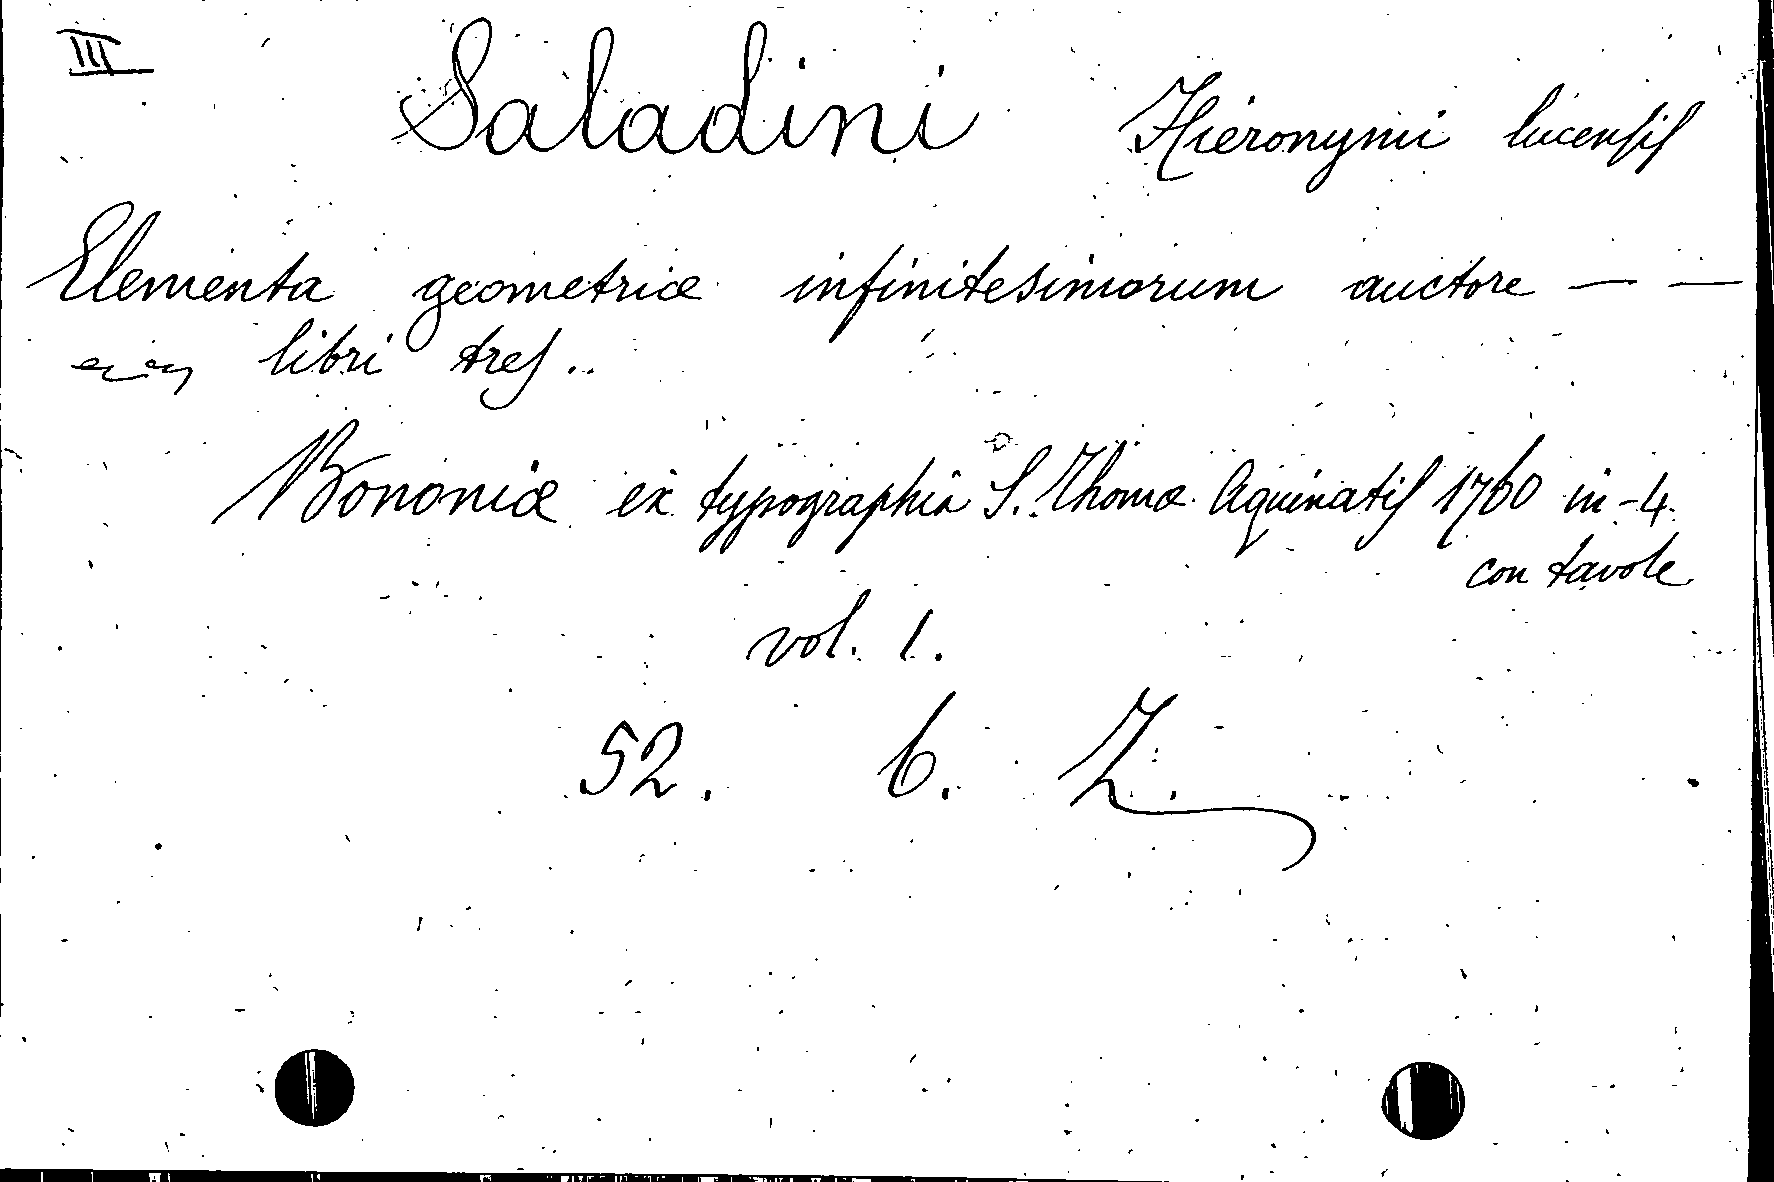 III
Saladini Hieronymi lucensis
Elementa geometriæ infinitesimorum auctore — —
libri tres..
Bononiæ ex typographia S. Thomæ Aquinatis 1760 in-4.
con tavole
vol. 1.
52. 6. Z.